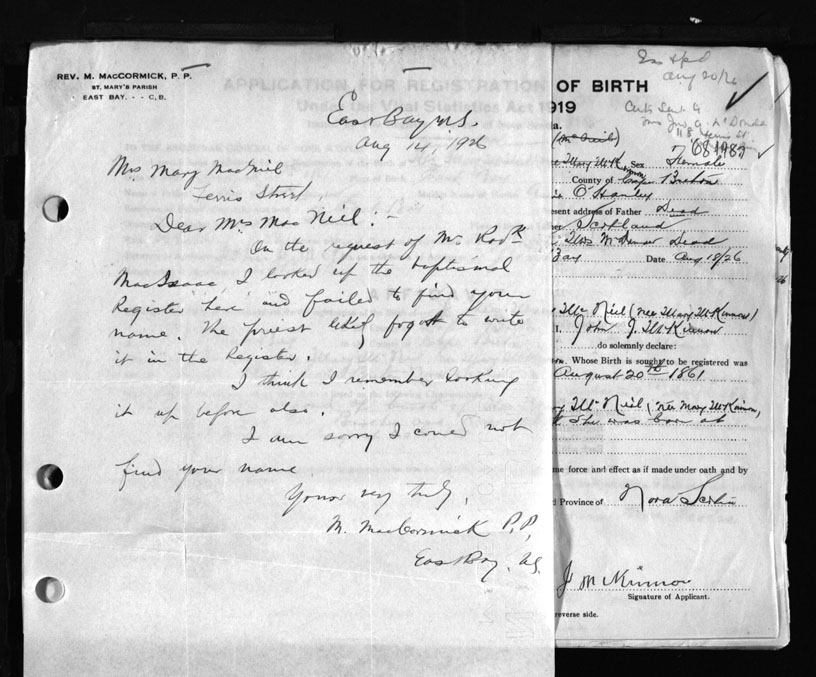 REV. M. MACCORMICK, P. P.
ST. MARY'S PARISH
EAST BAY, - - C. B.
East Bay N.S.
Aug 14, 1926
Mrs Mary MacNeil
Ferris Street,
Dear Mrs MacNeil:-
On the request of Mr Rod
MacIsaac, I looked up the baptismal
Register here and failed to find your
name. The priest likely forgot to write
it in the Register.
I think I remember looking
it up before also.
I am sorry I could not
find your name
Yours very truly,
M. MacCormick P.P.,
East Bay. N.S.
APPLICATION FOR REGISTRATION OF BIRTH
Under the Vital Statistics Act 1919
Aug 20/26
Sex Female
County of Cape Breton
O'Hanley
address of Father Dead
Scotland
Dead
Bay Date Aug 18/26
McNeil (nee Mary McKinnon)
I, John J. McKinnon
do solemnly declare:
Whose Birth is sought to be registered was
August 20th 1861
McNeil (nee Mary McKinnon,
she was born at
me force and effect as if made under oath and by
d Province of Nova Scotia
J McKinnon
Signature of Applicant.
reverse side.